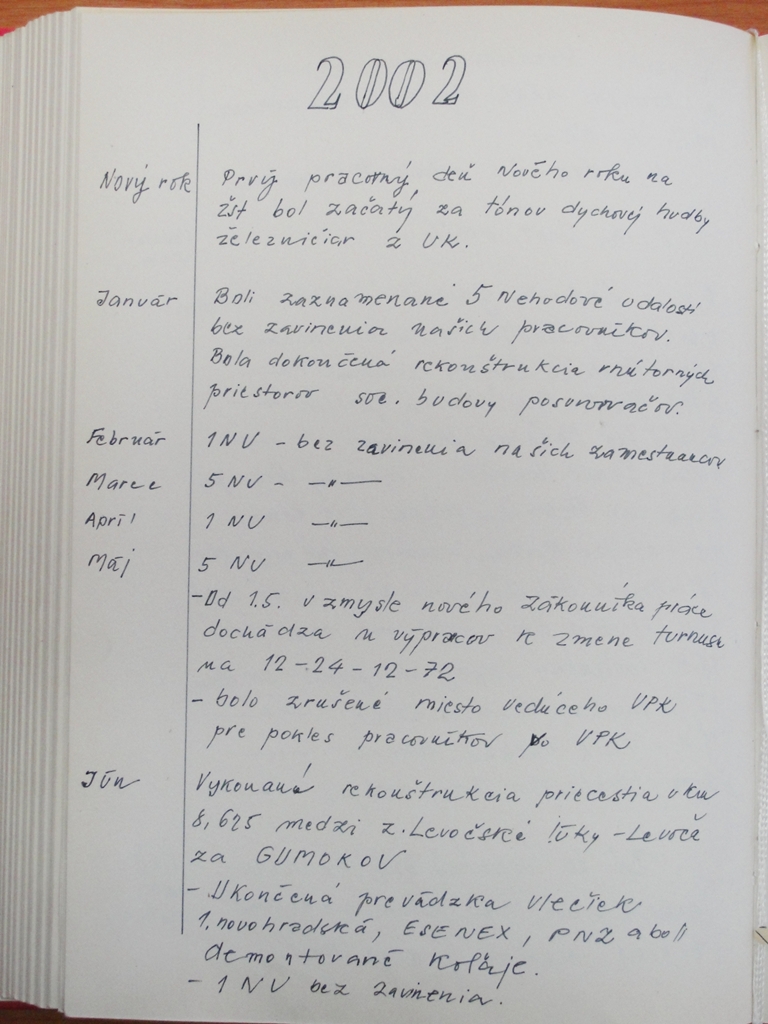 2002
Nový rok Prvý pracovný deň Nového roku na
žst bol začatý za tónov dychovej hudby
železničiar z VK.
Január Boli zaznamenané 5 Nehodové udalosti
bez zavinenia našich pracovníkov.
Bola dokončená rekonštrukcia vnútorných
priestorov soc. budovy posunovačov.
Február 1 NU - bez zavinenia našich zamestnancov
Marec 5 NU - —"—
Apríl 1 NU —"—
Máj 5 NU —"—
- Od 1.5. v zmysle nového Zákonníka práce
dochádza u výpracov k zmene turnusu
na 12-24-12-72
- bolo zrušené miesto vedúceho VPK
pre pokles pracovníkov po VPK
Jún Vykonaná rekonštrukcia priecestia v km
8,625 medzi z. Levočské lúky - Levoča
za GUMOKOV
- Ukončená prevádzka vlečiek
1. novohradská, ESENEX, PNZ a boli
demontované koľaje.
- 1 NU bez zavinenia.